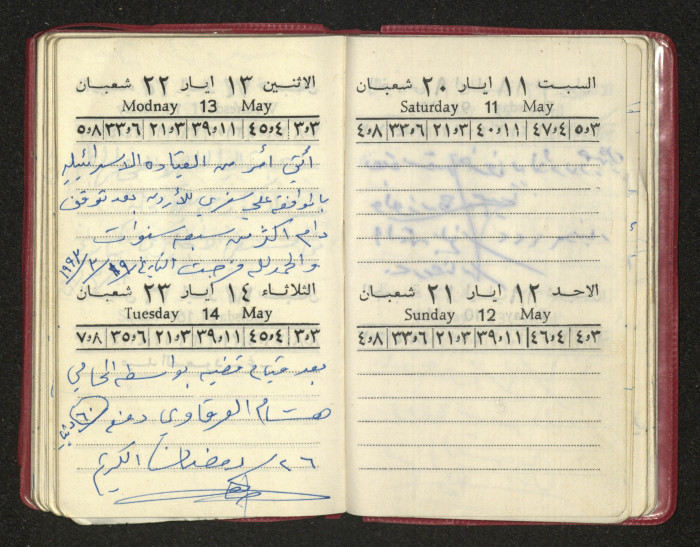 السبت ١١ ايار ٢٠ شعبان
Saturday 11 May
٥٫٣ ٤٧٫٤ ٤٠٫١١ ٢١٫٣ ٣٣٫٦ ٤٫٨
الاحد ١٢ ايار ٢١ شعبان
Sunday 12 May
٤٫٣ ٤٦٫٤ ٣٩٫١١ ٢١٫٣ ٣٣٫٦ ٤٫٨
الاثنين ١٣ ايار ٢٢ شعبان
Modnay 13 May
٣٫٣ ٤٥٫٤ ٣٩٫١١ ٢١٫٣ ٣٣٫٦ ٥٫٨
أتى أمر من القياده الاسرائيليه
بالموافقة على سفري للأردن بعد توقف
دام اكثر من سبعه سنوات
والحمد لله فرجت التاريخ ١٩/٣/١٩٩٢
الثلاثاء ١٤ ايار ٢٣ شعبان
Tuesday 14 May
٣٫٣ ٤٥٫٤ ٣٩٫١١ ٢١٫٣ ٣٥٫٦ ٧٫٨
بعد قيام قضيه بواسطه المحامي
هشام دفع ٦٠ دينار
٢٦ رمضان الكريم